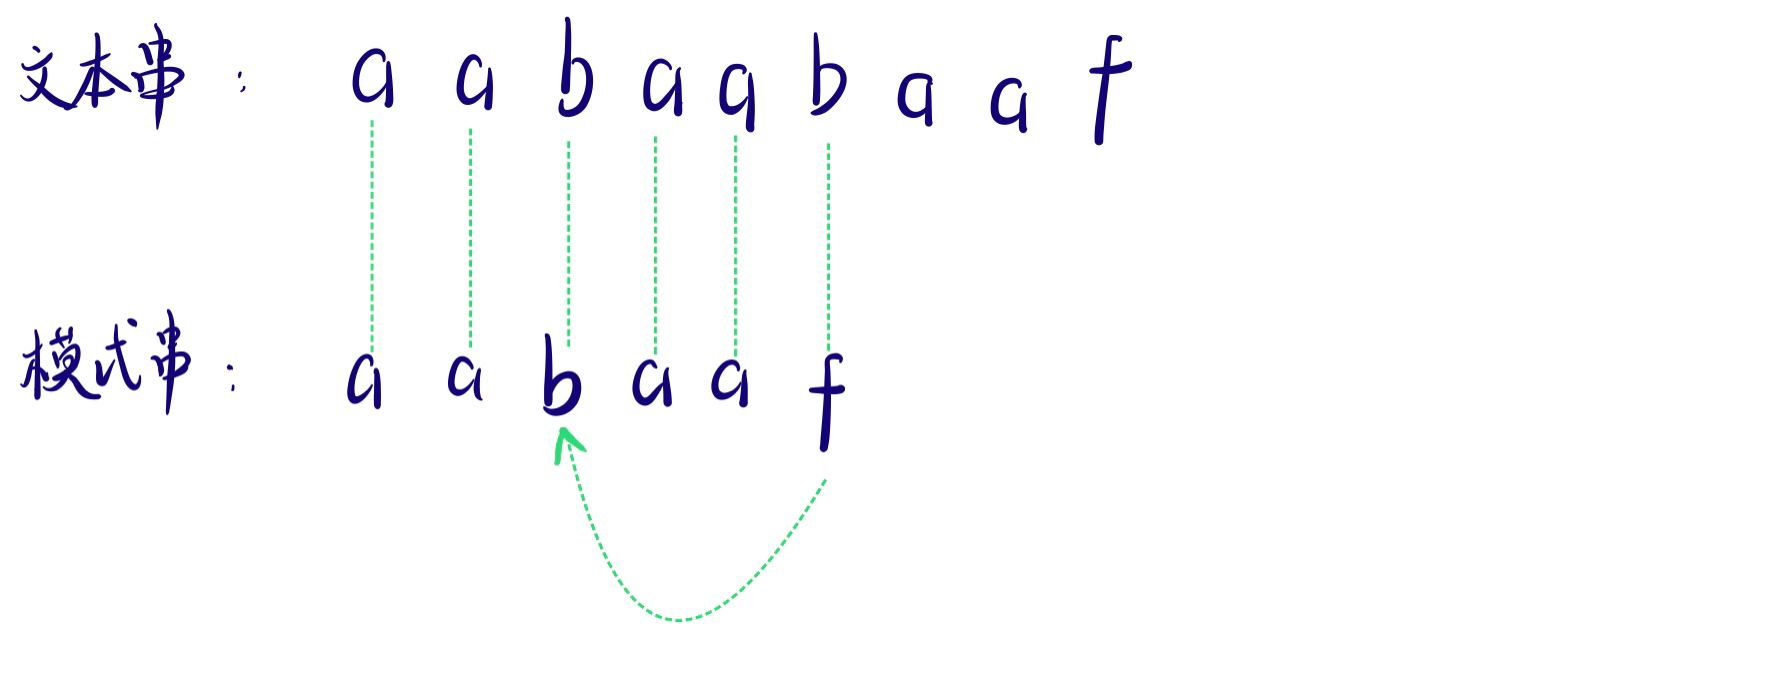 文本串: a a b a a b a a f
模式串: a a b a a f